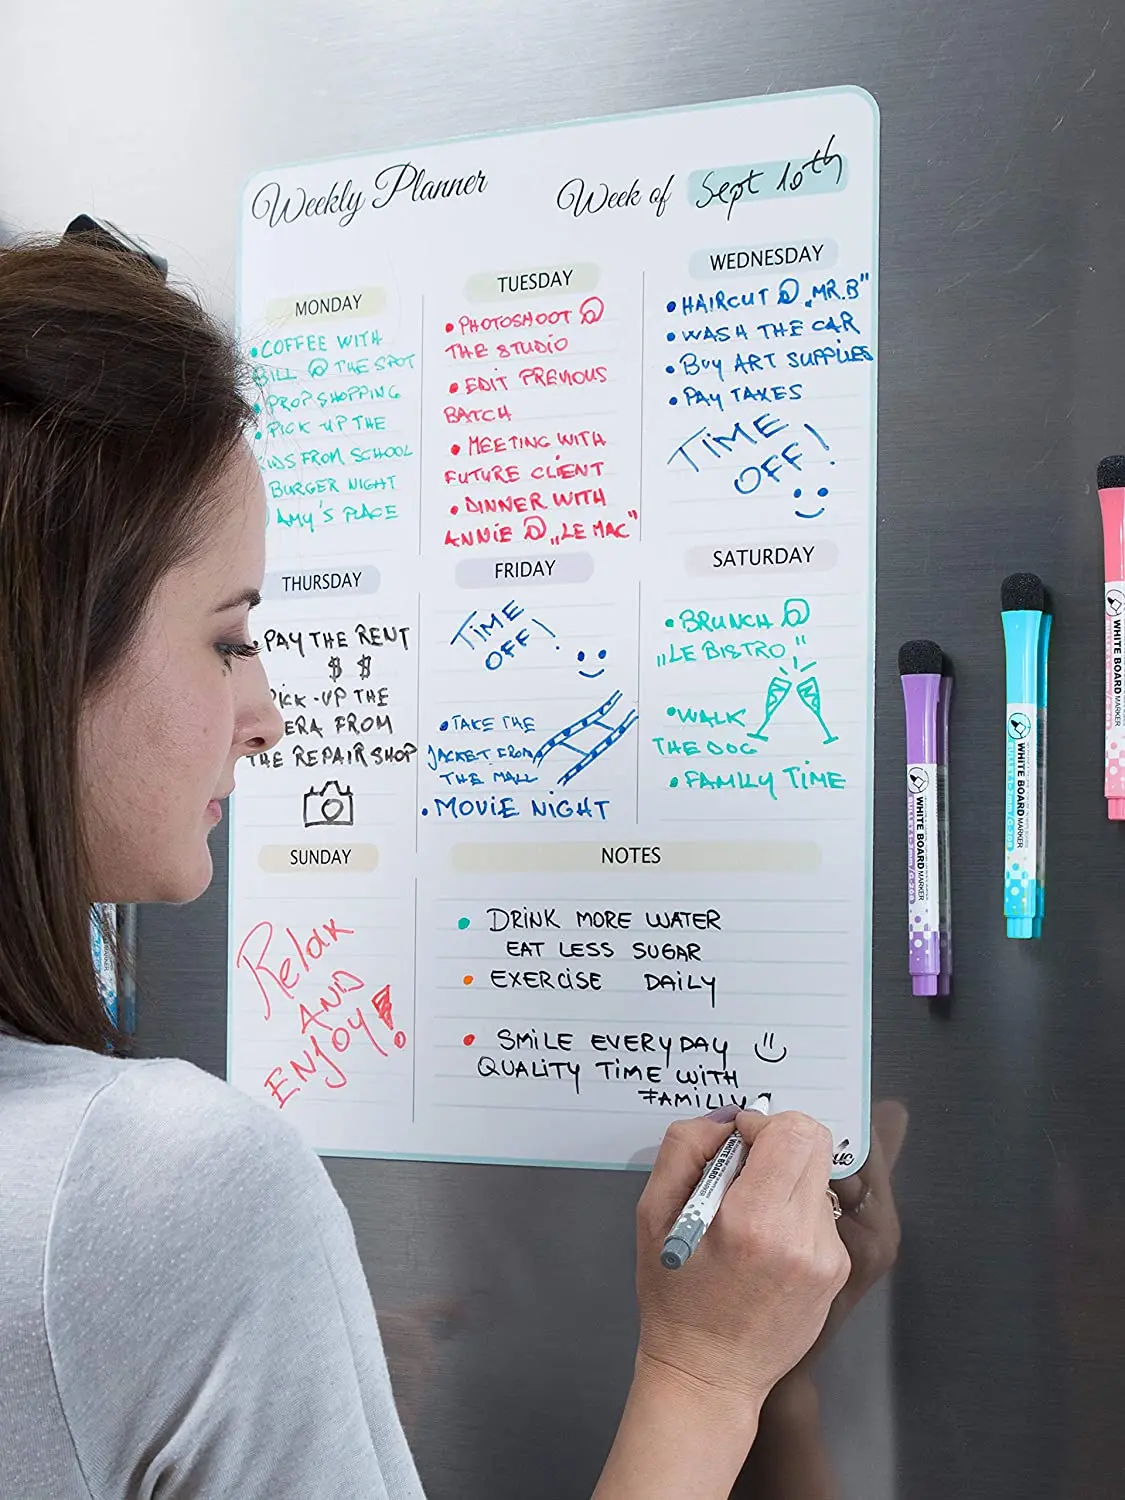 Weekly Planner
Week of Sept 10th
MONDAY
• COFFEE WITH
BILL @ THE SPOT
• PROP SHOPPING
• PICK UP THE
KIDS FROM SCHOOL
BURGER NIGHT
AMY'S PLACE
TUESDAY
• PHOTOSHOOT @
THE STUDIO
• EDIT PREVIOUS
BATCH
• MEETING WITH
FUTURE CLIENT
• DINNER WITH
ANNIE @ „LE MAC"
WEDNESDAY
• HAIRCUT @ „MR.B"
• WASH THE CAR
• BUY ART SUPPLIES
• PAY TAXES
TIME
OFF!
THURSDAY
• PAY THE RENT
$ $
PICK-UP THE
ERA FROM
THE REPAIR SHOP
FRIDAY
TIME
OFF!
• TAKE THE
JACKET FROM
THE MALL
• MOVIE NIGHT
SATURDAY
• BRUNCH @
„LE BISTRO"
• WALK
THE DOG
• FAMILY TIME
SUNDAY
Relax
AND
ENJOY!
NOTES
• DRINK MORE WATER
EAT LESS SUGAR
• EXERCISE DAILY
• SMILE EVERYDAY
QUALITY TIME WITH
FAMILLY
WHITE BOARD MARKER
WHITE BOARD MARKER
WHITE BOARD MARKER
WHITE BOARD MARKER